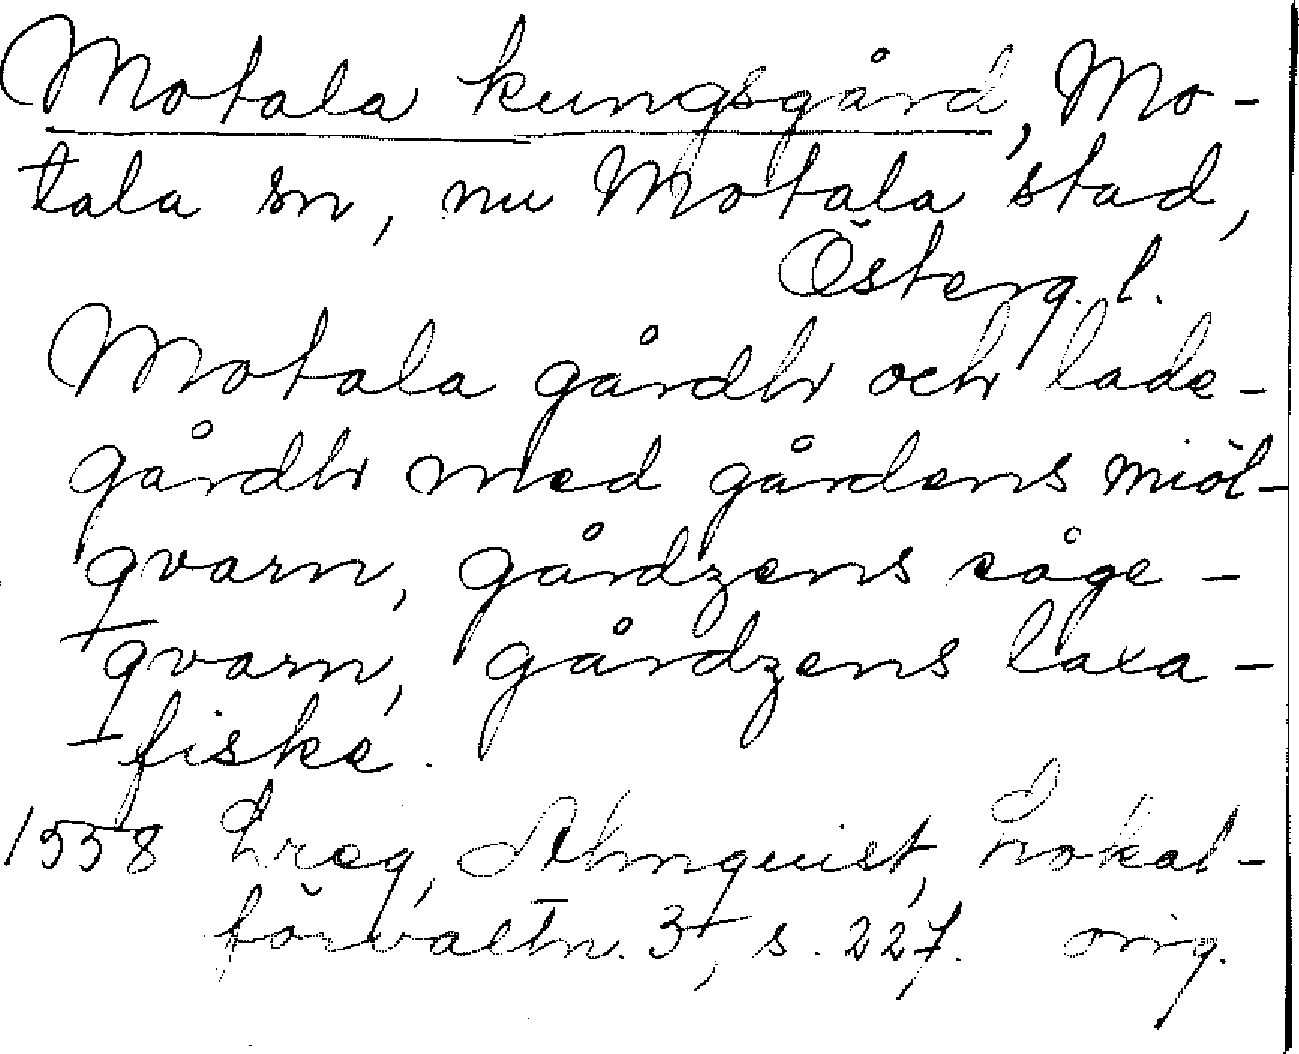 Motala kungsgård, Mo-
tala sn, nu Motala stad,
Österg. l.
Motala gårdh och lade-
gårdh med gårdens miöl-
qvarn, gårdzens såge-
qvarn, gårdzens laxa-
fiske.
1558 Almquist, Lokal-
förvaltn. 3, s. 227. orig.